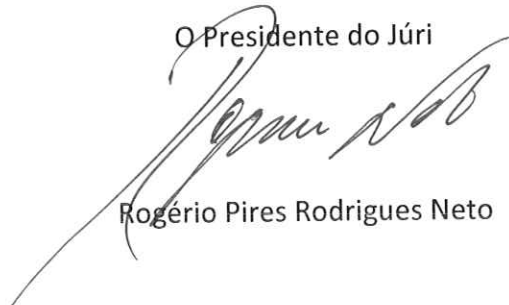 O Presidente do Júri
Rogério Pires Rodrigues Neto